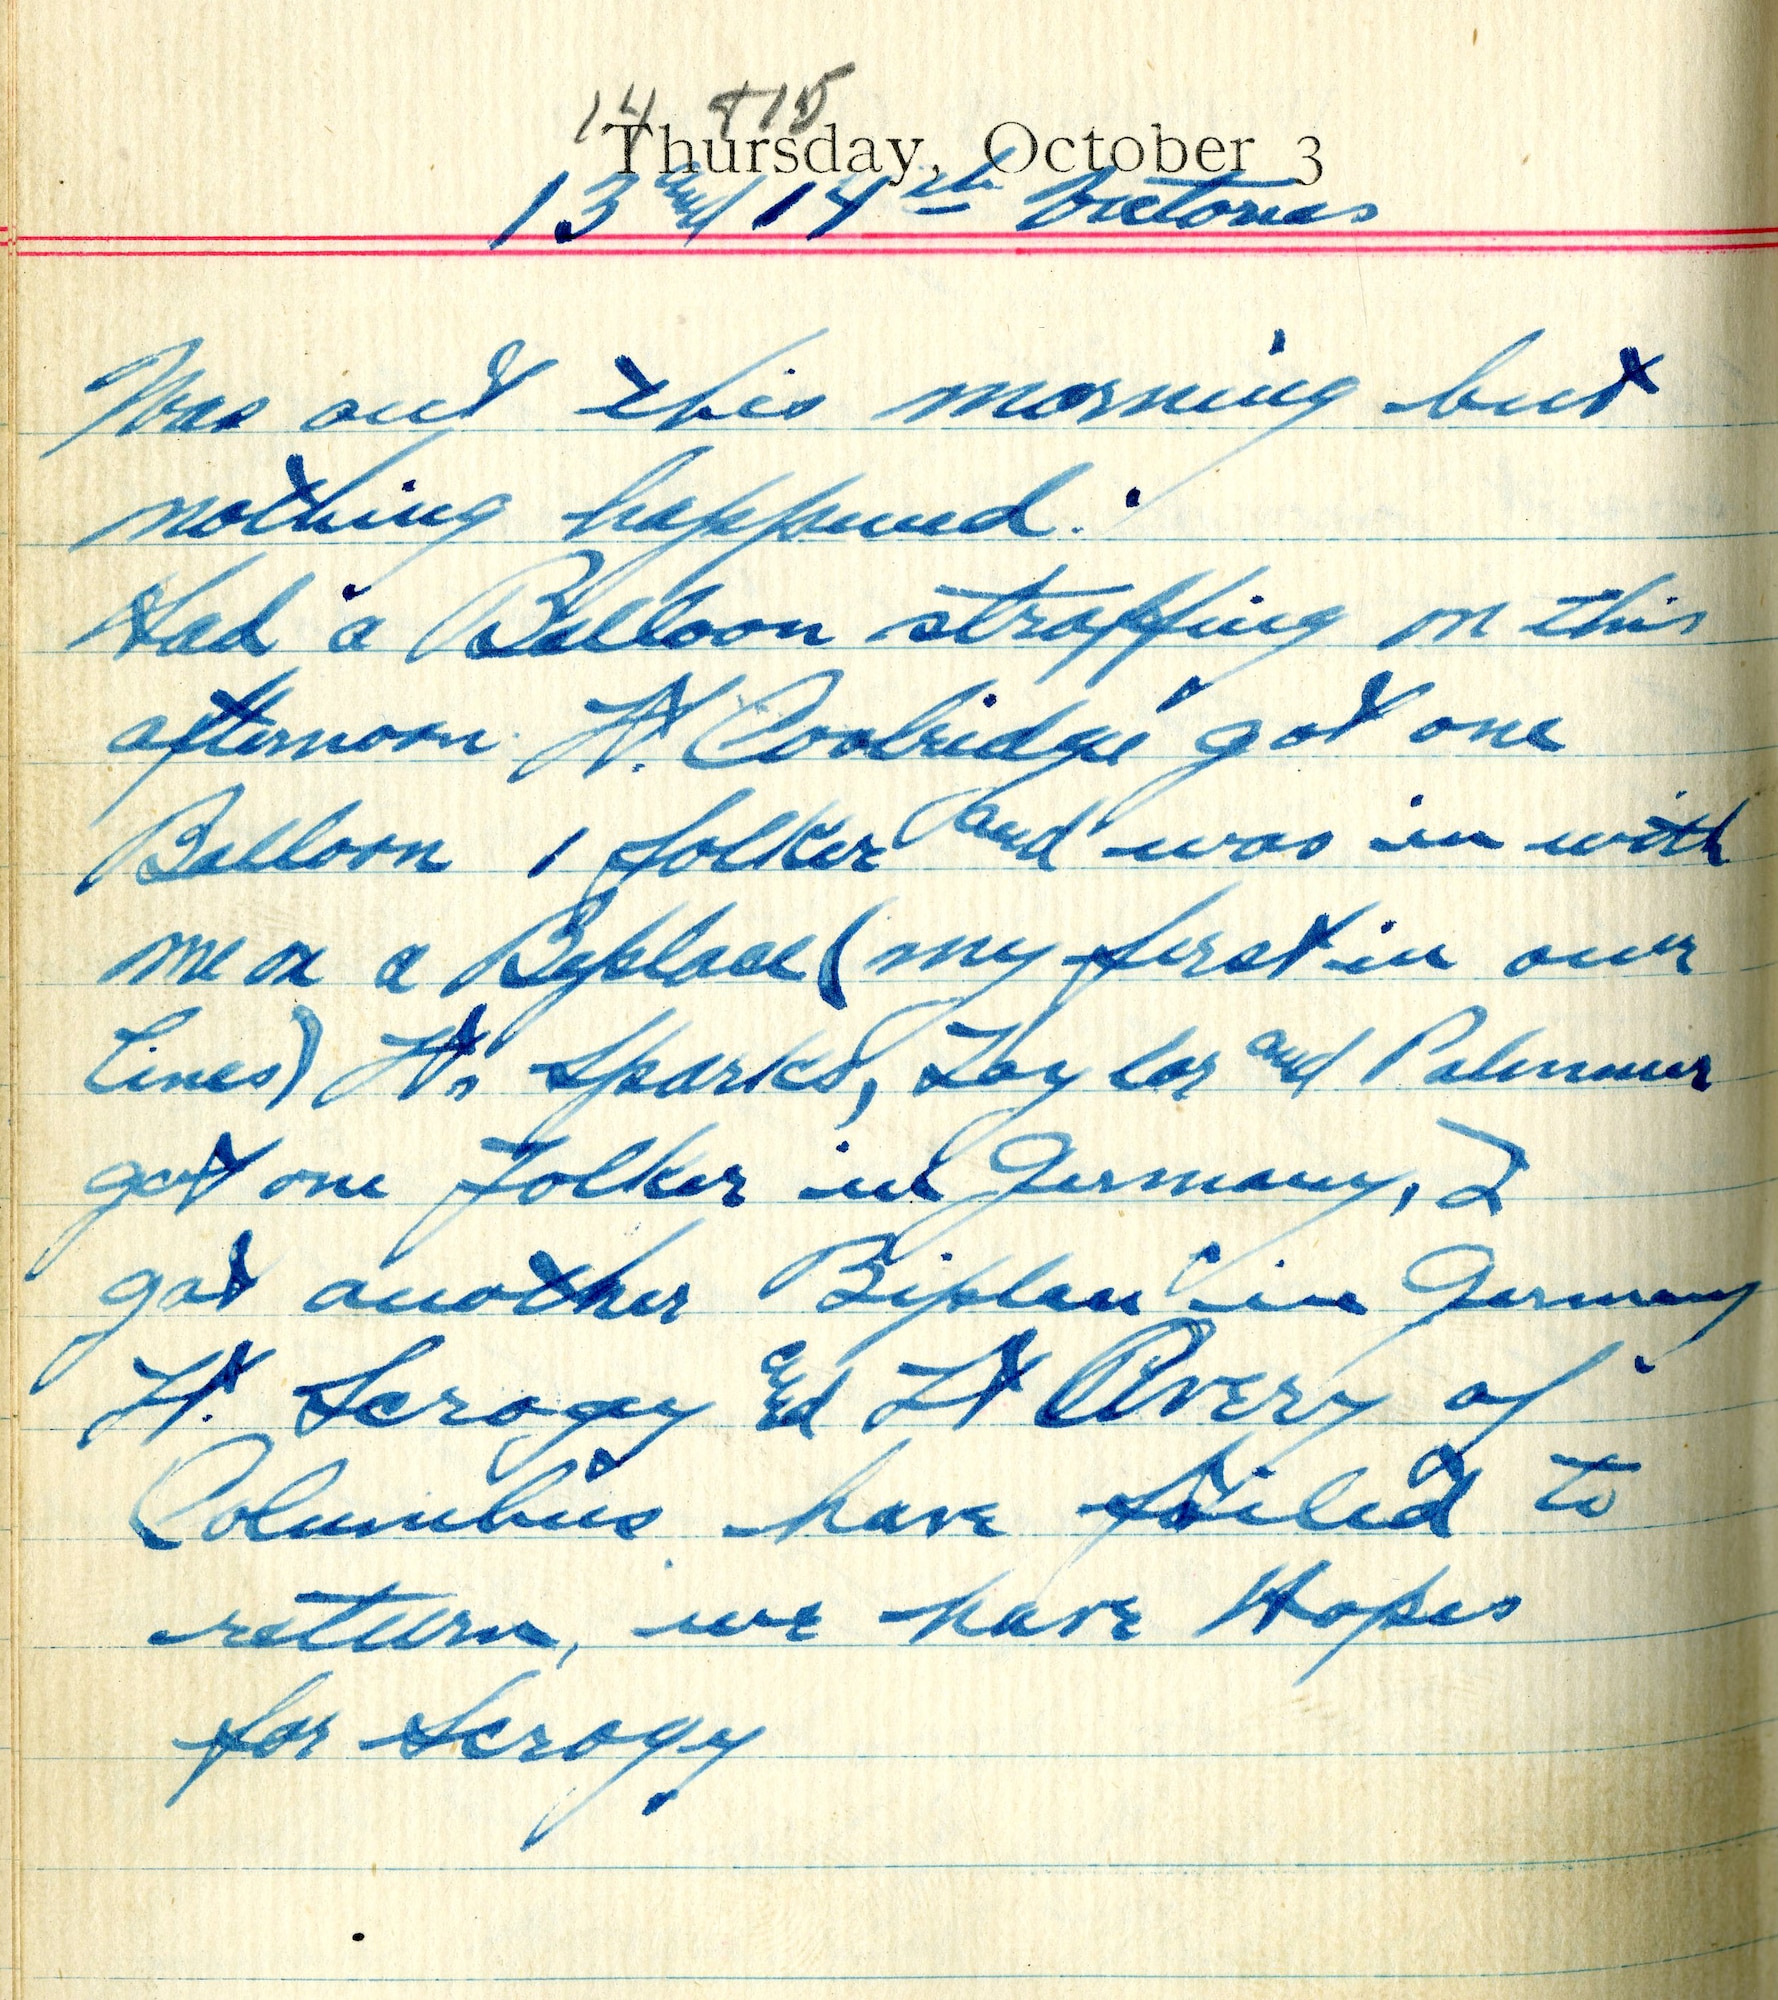 14 +15
Thursday, October 3
13 and 14th Victories
Was out this morning but
nothing happened.
Had a Balloon straffing on this
afternoon. Lt. Coolridge got one
Balloon 1 folker and was in with
me on a Biplace (my first in our
Lines) Lts Sparks, Taylor and Palmer
got one Folker in Germany, I
got another Biplan in Germany
Lt. Scrogy and Lt Avery of
Columbus have failed to
return, we have Hopes
for Scrogy